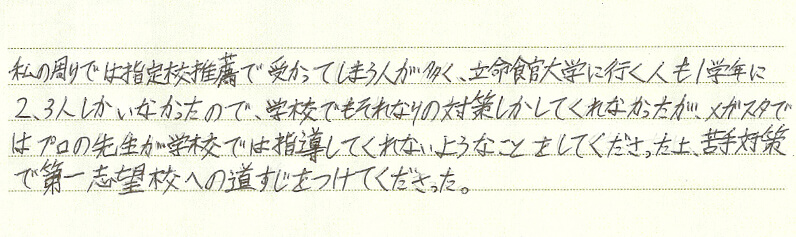 私の周りでは指定校推薦で受かってしまう人が多く、立命館大学に行く人も1学年に
2、3人しかいなかったので、学校でもそれなりの対策しかしてくれなかったが、メガスタで
はプロの先生が学校では指導してくれないようなことをしてくださった上、苦手対策
で第一志望校への道すじをつけてくださった。